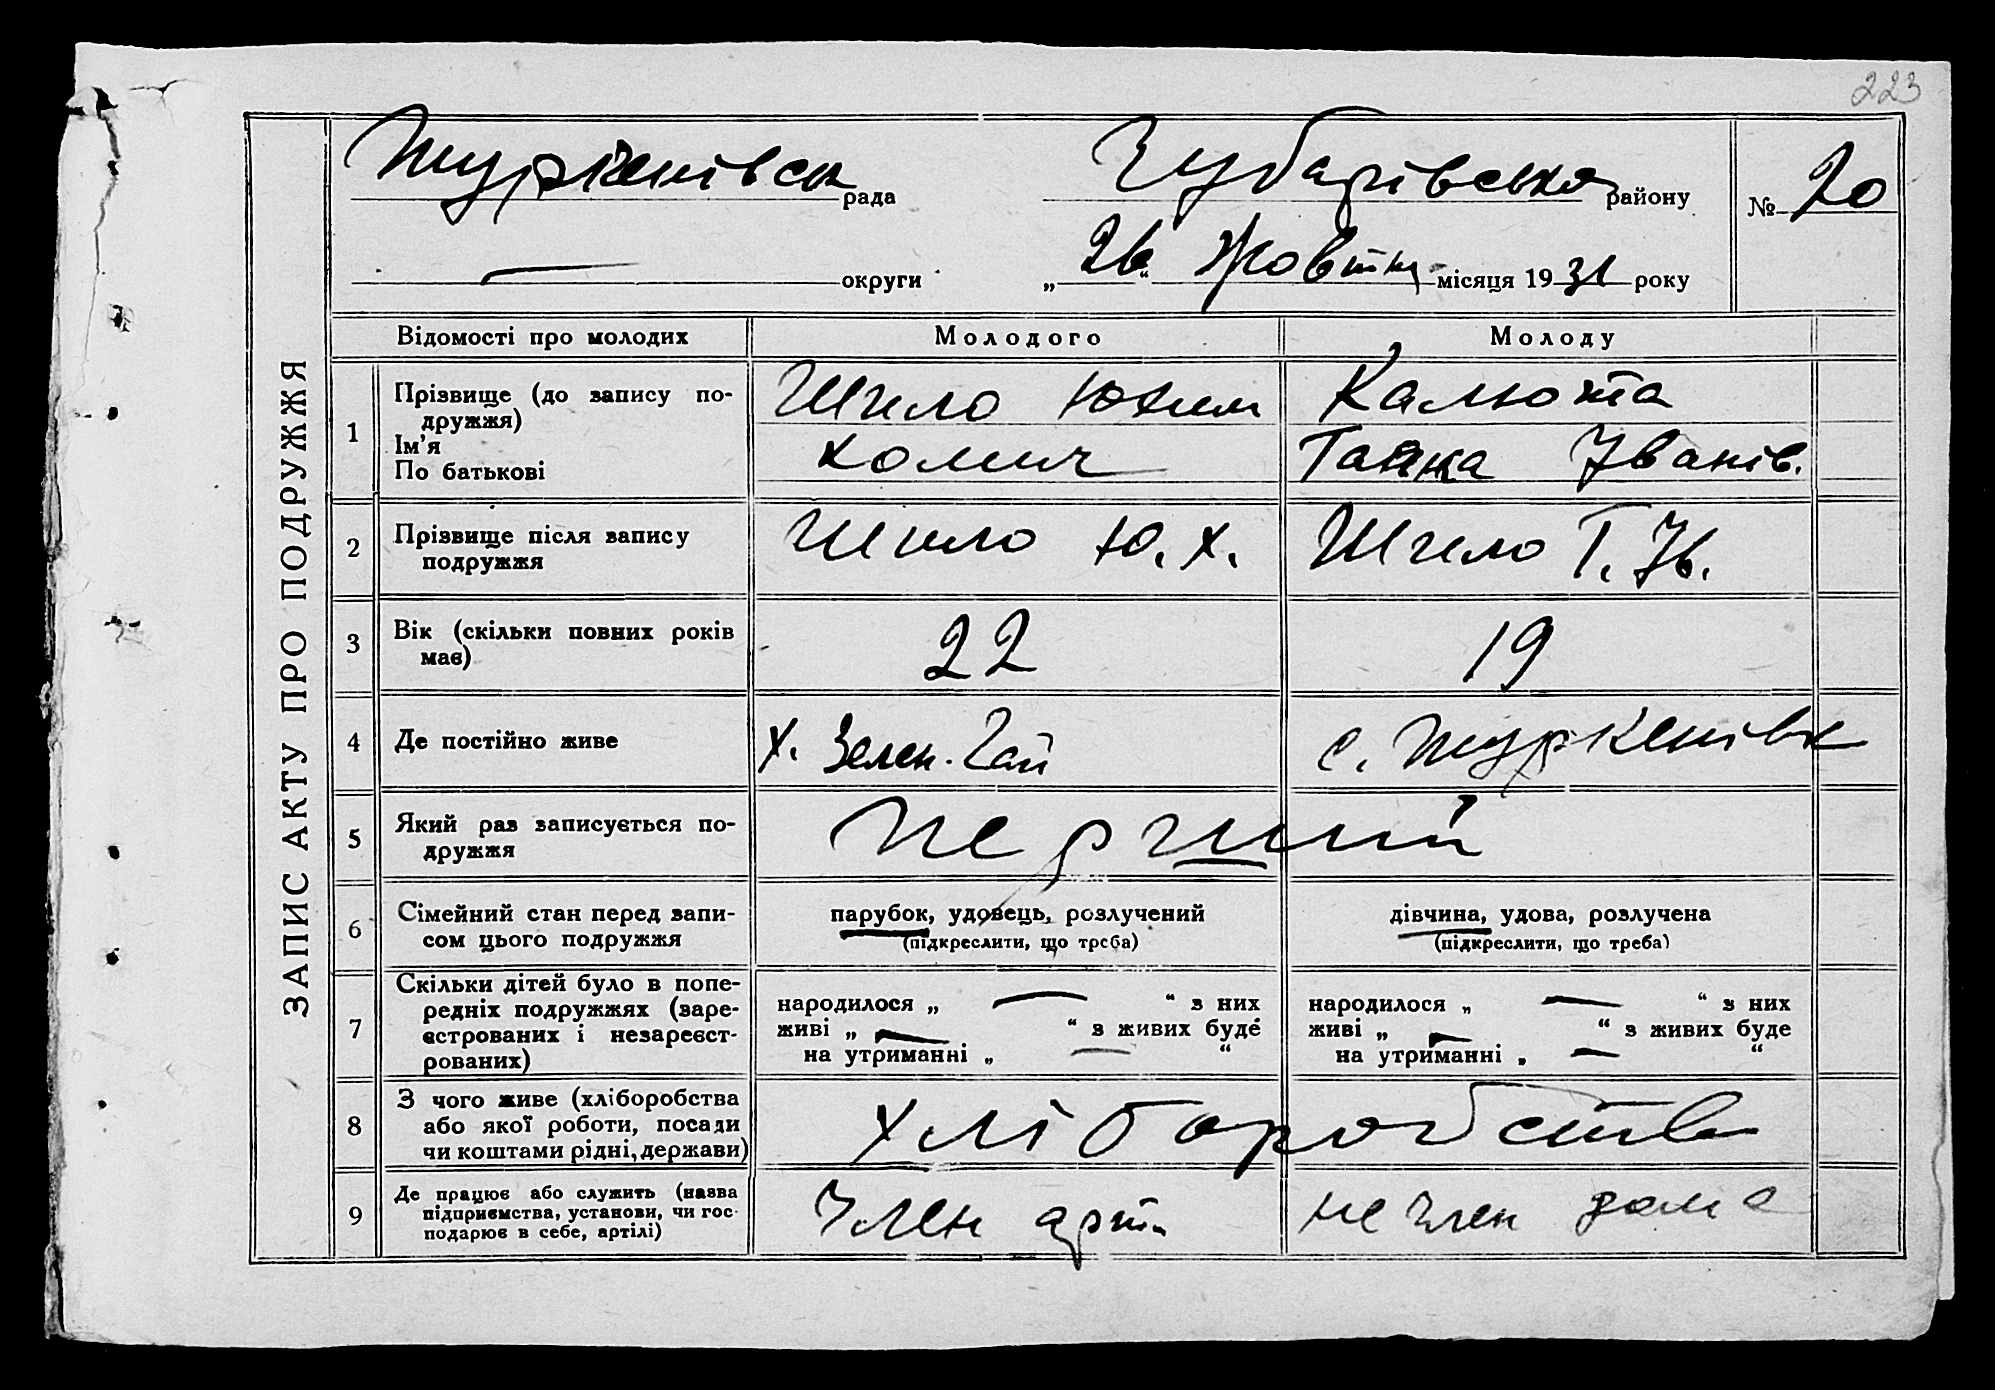 223
ЗАПИС АКТУ ПРО ПОДРУЖЖЯ
Туркенівськ рада
Чубарівського району
№ 20
— округи
„26“ Жовтня місяця 1931 року
Відомості про молодих
Молодого
Молоду
1
Прізвище (до запису по-
дружжя)
Ім'я
По батькові
Шило Юхим
Хомич
Калюжта
Ганна Іванів.
2
Прізвище після запису
подружжя
Шило Ю. Х.
Шило Г. Ів.
3
Вік (скільки повних років
має)
22
19
4
Де постійно живе
х. Зелен. Гай
с. Туркенівк
5
Який раз записується по-
дружжя
перший
6
Сімейний стан перед запи-
сом цього подружжя
парубок, удовець, розлучений
(підкреслити, що треба)
дівчина, удова, розлучена
(підкреслити, що треба)
7
Скільки дітей було в попе-
редніх подружжях (заре-
єстрованих і незареєст-
рованих)
народилося „ — “ з них
живі „ — “ з живих буде
на утриманні „ — “
народилося „ — “ з них
живі „ — “ з живих буде
на утриманні „ — “
8
З чого живе (хліборобства
або якої роботи, посади
чи коштами рідні, держави)
хліборобств
9
Де працює або служить (назва
підприємства, установи, чи гос-
подарює в себе, артілі)
Член арт.
не член дома